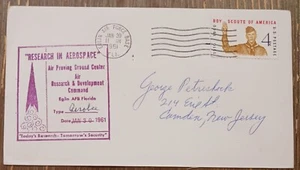 EGLIN AIR FORCE BASE
JAN 30
1961
FLA.
BOY SCOUTS OF AMERICA
4¢
U.S. POSTAGE
"RESEARCH IN AEROSPACE"
Air Proving Ground Center
Air
Research & Development
Command
Eglin AFB Florida
Type
Date JAN 30 1961
"Today's Research - Tomorrow's Security"
George Petrushock
214 Erie St
Camden, New Jersey